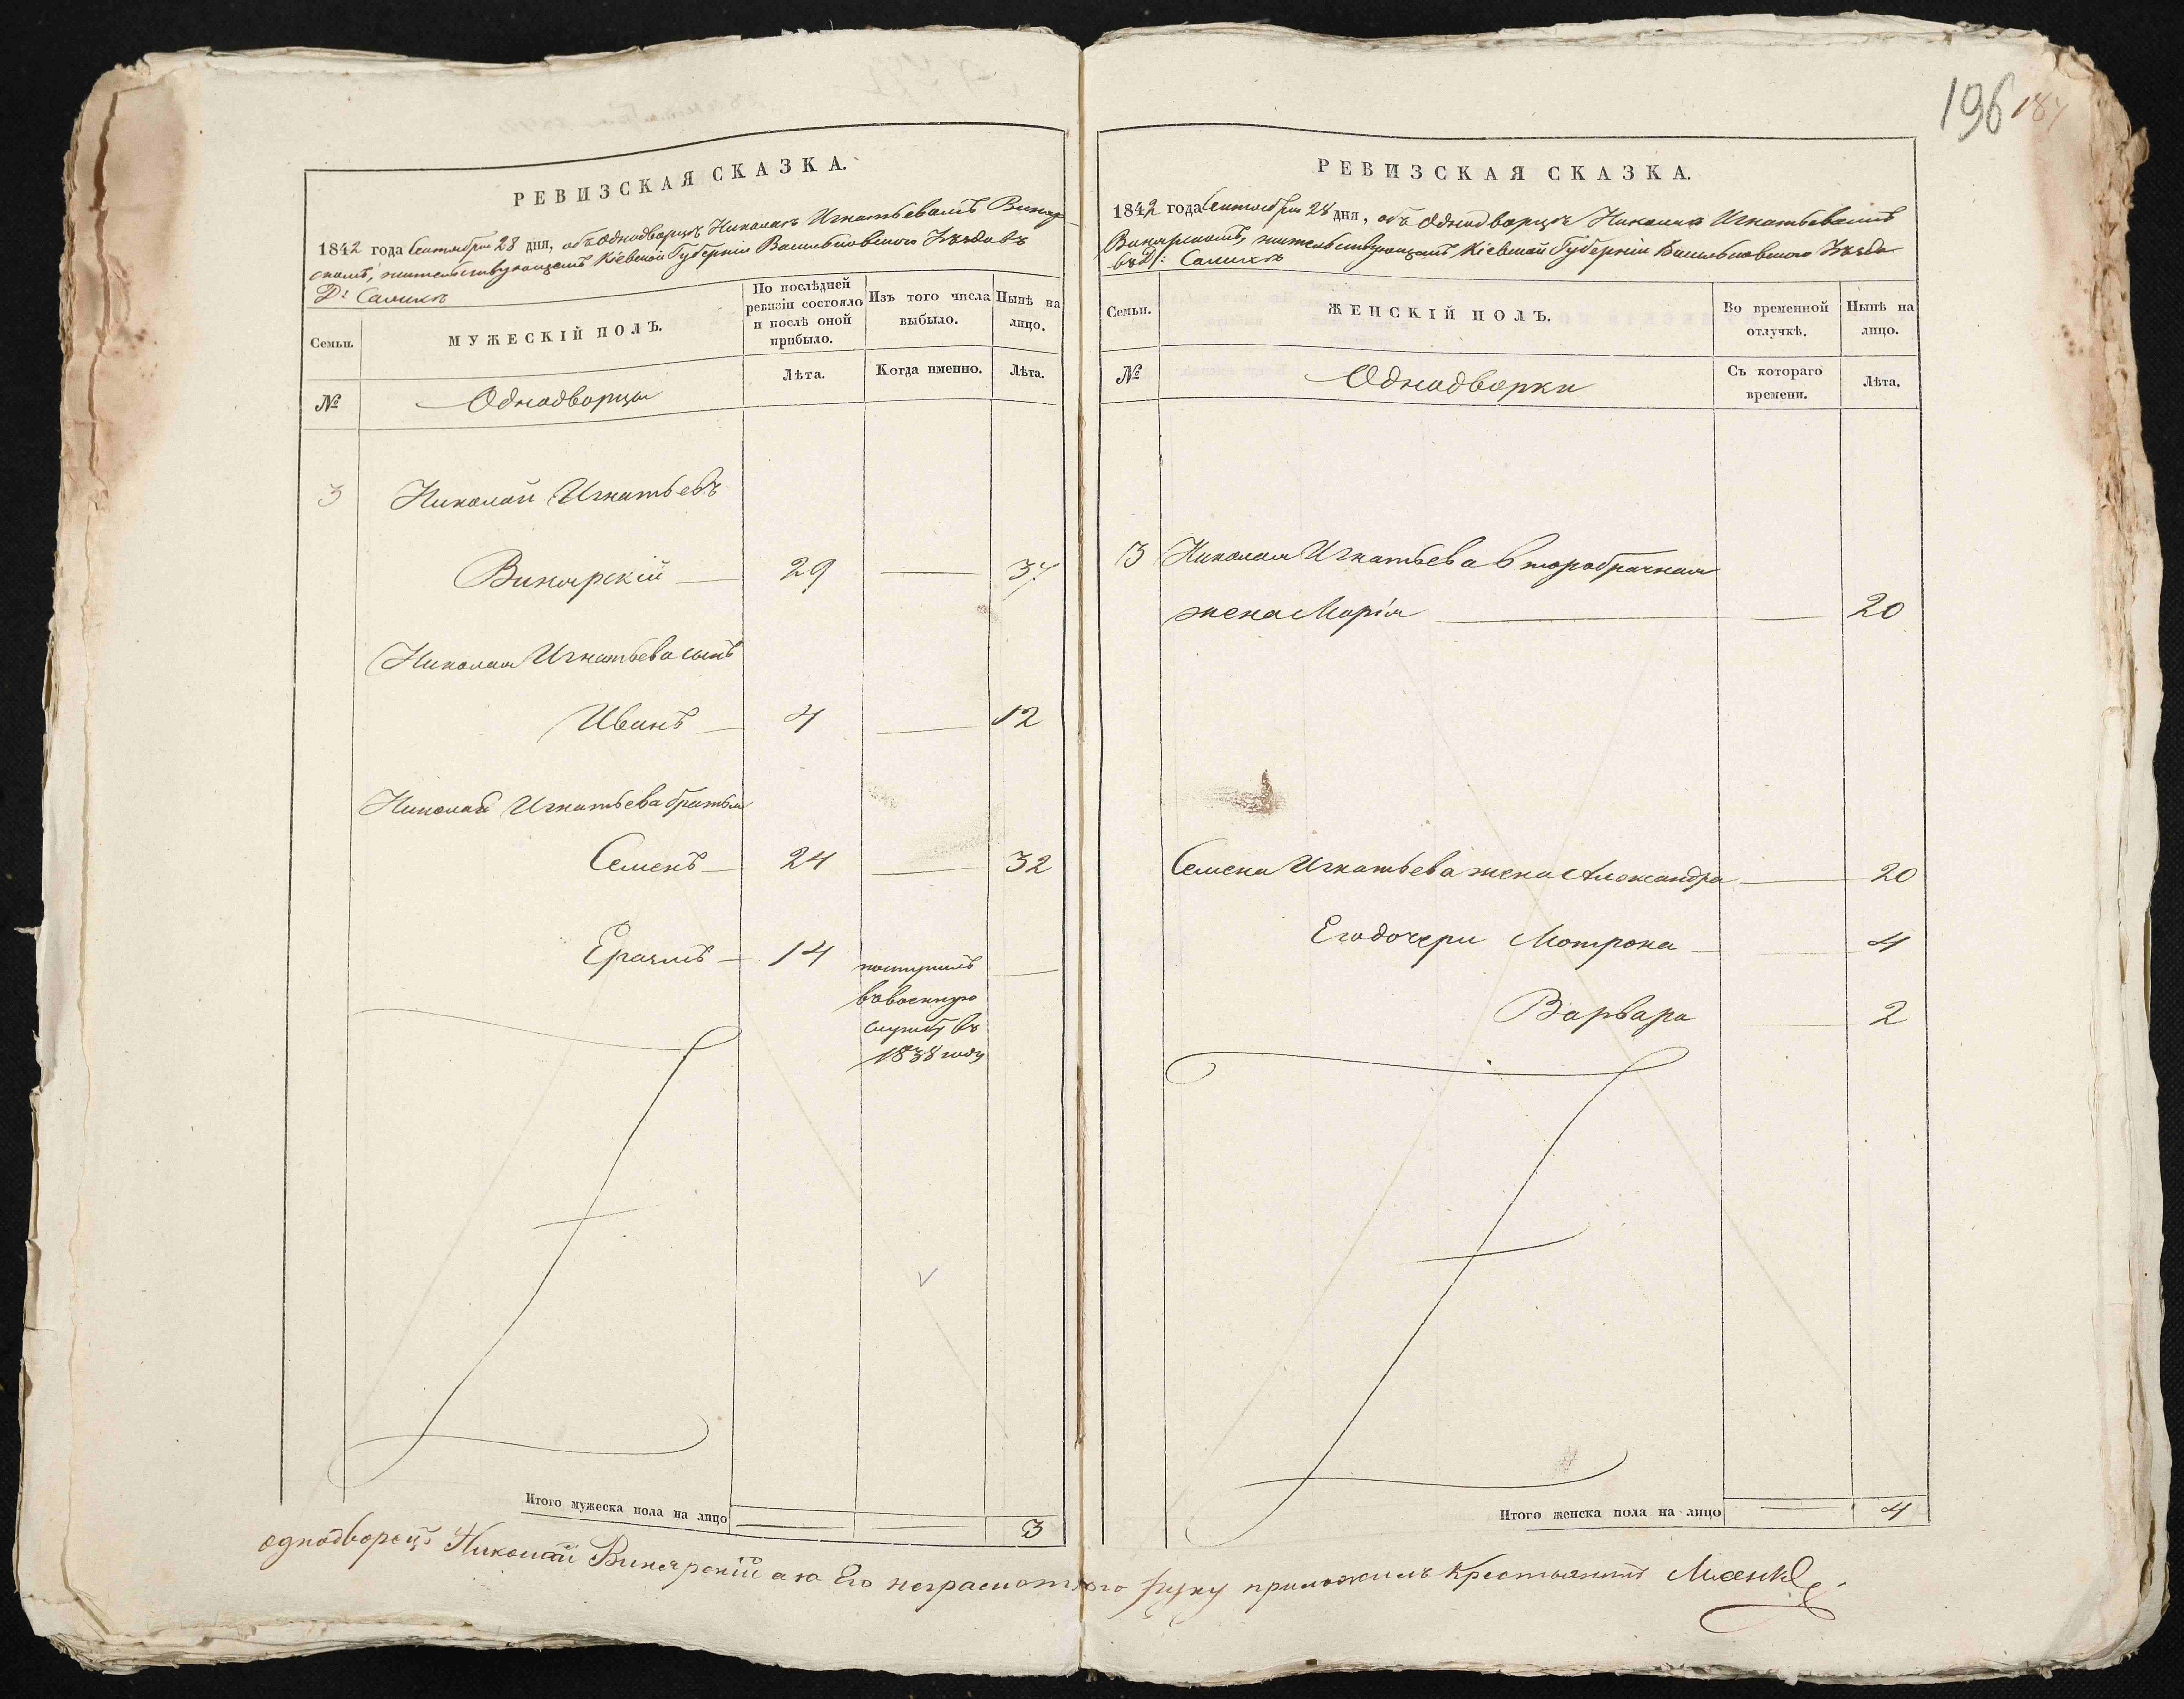 196 187
РЕВИЗСКАЯ СКАЗКА.
1842 года Сентября 28 дня, объ Однодворцѣ Николаѣ Игнатьевомъ Виняр-
скомъ, жительствующемъ Кіевской Губерніи Васильковскаго Уѣзда въ
Д: Салихѣ
Семьи.
МУЖЕСКІЙ ПОЛЪ.
По послѣдней
ревизіи состояло
и послѣ оной
прибыло.
Изъ того числа
выбыло.
Нынѣ на
лицо.
№
Однодворцы
Лѣта.
Когда именно.
Лѣта.
3 Николай Игнатьевъ
Винярскій — 29 — 37
Николая Игнатьева сынъ
Иванъ — 4 — 12
Николая Игнатьева братья
Семенъ — 24 — 32
— 14 поступилъ —
въ военную
службу въ
1838 году
Итого мужеска пола на лицо — — 3
РЕВИЗСКАЯ СКАЗКА.
1842 года Сентября 28 дня, объ Однодворцѣ Николаѣ Игнатьевомъ
Винярскомъ, жительствующемъ Кіевской Губерніи Васильковскаго Уѣзда
въ Д: Салихѣ
Семьи.
ЖЕНСКІЙ ПОЛЪ.
Во временной
отлучкѣ.
Нынѣ на
лицо.
№
Однодворки
Съ котораго
времени.
Лѣта.
3 Николая Игнатьева второбрачная
жена Марія — — 20
Семена Игнатьева жена Александра — 20
Его дочери Мотрона — 4
Варвара 2
Итого женска пола на лицо — 4
однодворецъ Николай Винярскій а за Его неграмотного руку приложилъ Крестьянинъ